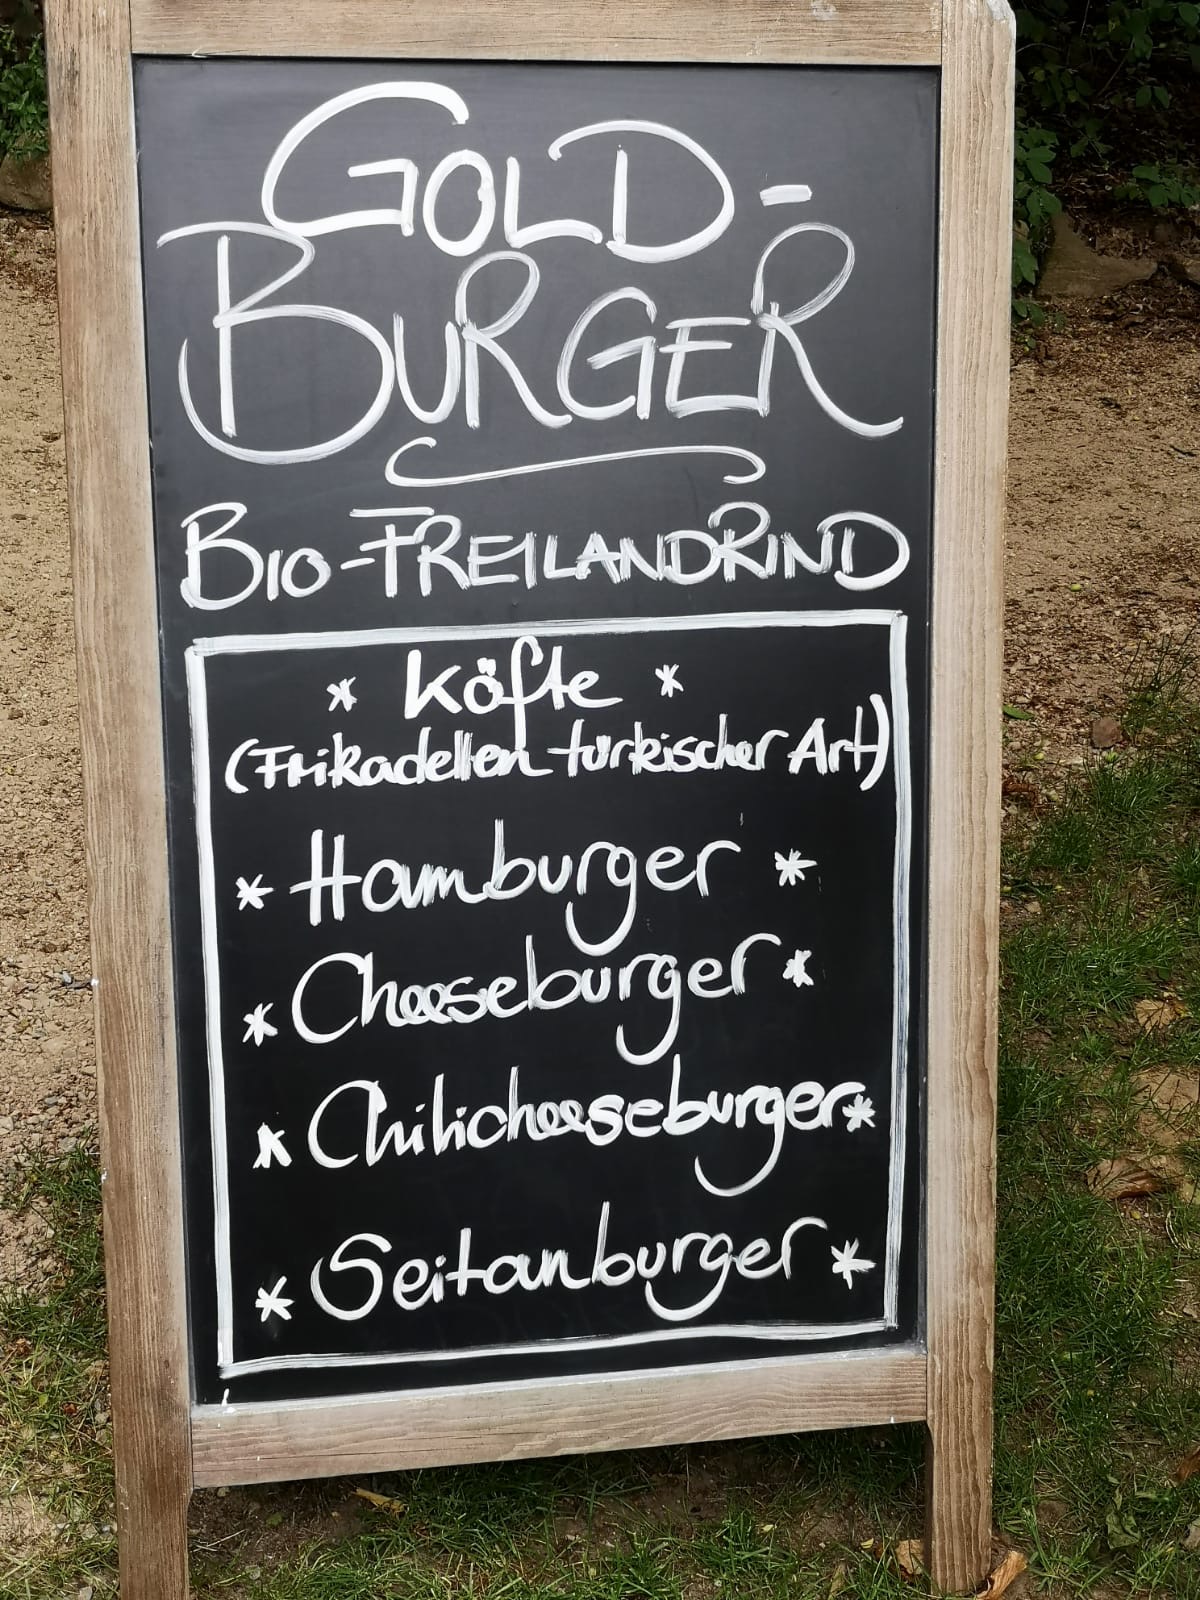 GOLD-
BURGER
BIO-FREILANDRIND
* Köfte *
(Frikadellen türkischer Art)
* Hamburger *
* Cheeseburger *
* Chilicheeseburger *
* Seitanburger *